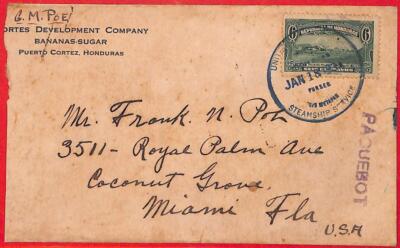 C. M. POE
ORTES DEVELOPMENT COMPANY
BANANAS-SUGAR
PUERTO CORTEZ, HONDURAS
6 6
UNIT
JAN 1
PURSER
STEAMSHIP SERVICE
PAQUEBOT
Mr. Frank N. Poe
3511 - Royal Palm Ave
Coconut Grove
Miami Fla
U.S.A